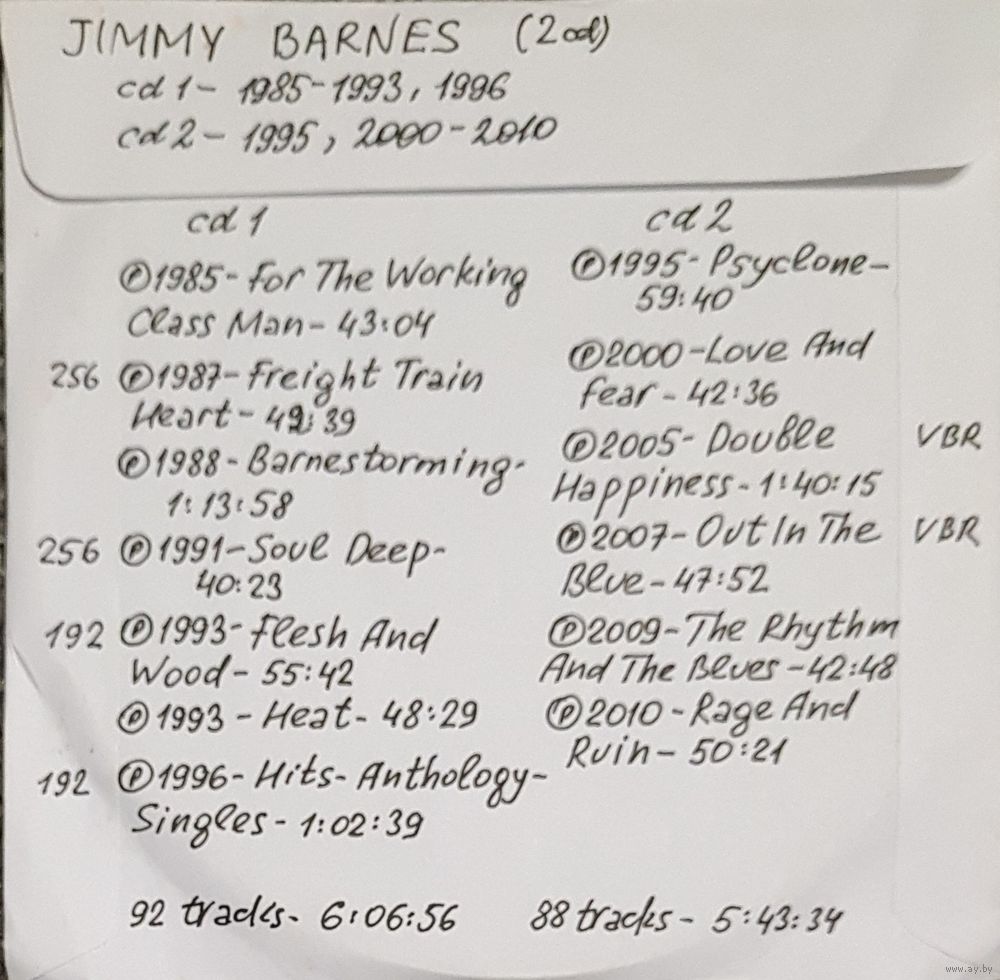 JIMMY BARNES (2cd)
cd 1 - 1985-1993, 1996
cd 2 - 1995, 2000-2010
cd 1
Ⓟ1985- For The Working
Class Man- 43:04
256 Ⓟ1987- Freight Train
Heart- 42:39
Ⓟ1988- Barnestorming-
1:13:58
256 Ⓟ1991- Soul Deep-
40:23
192 Ⓟ1993- Flesh And
Wood- 55:42
Ⓟ1993 - Heat- 48:29
192 Ⓟ1996- Hits- Anthology-
Singles- 1:02:39
92 tracks- 6:06:56
cd 2
Ⓟ1995- Psyclone-
59:40
Ⓟ2000-Love And
Fear- 42:36
Ⓟ2005- Double VBR
Happiness- 1:40:15
Ⓟ2007- Out In The VBR
Blue- 47:52
Ⓟ2009- The Rhythm
And The Blues -42:48
Ⓟ2010 - Rage And
Ruin- 50:21
88 tracks- 5:43:34
www.ay.by